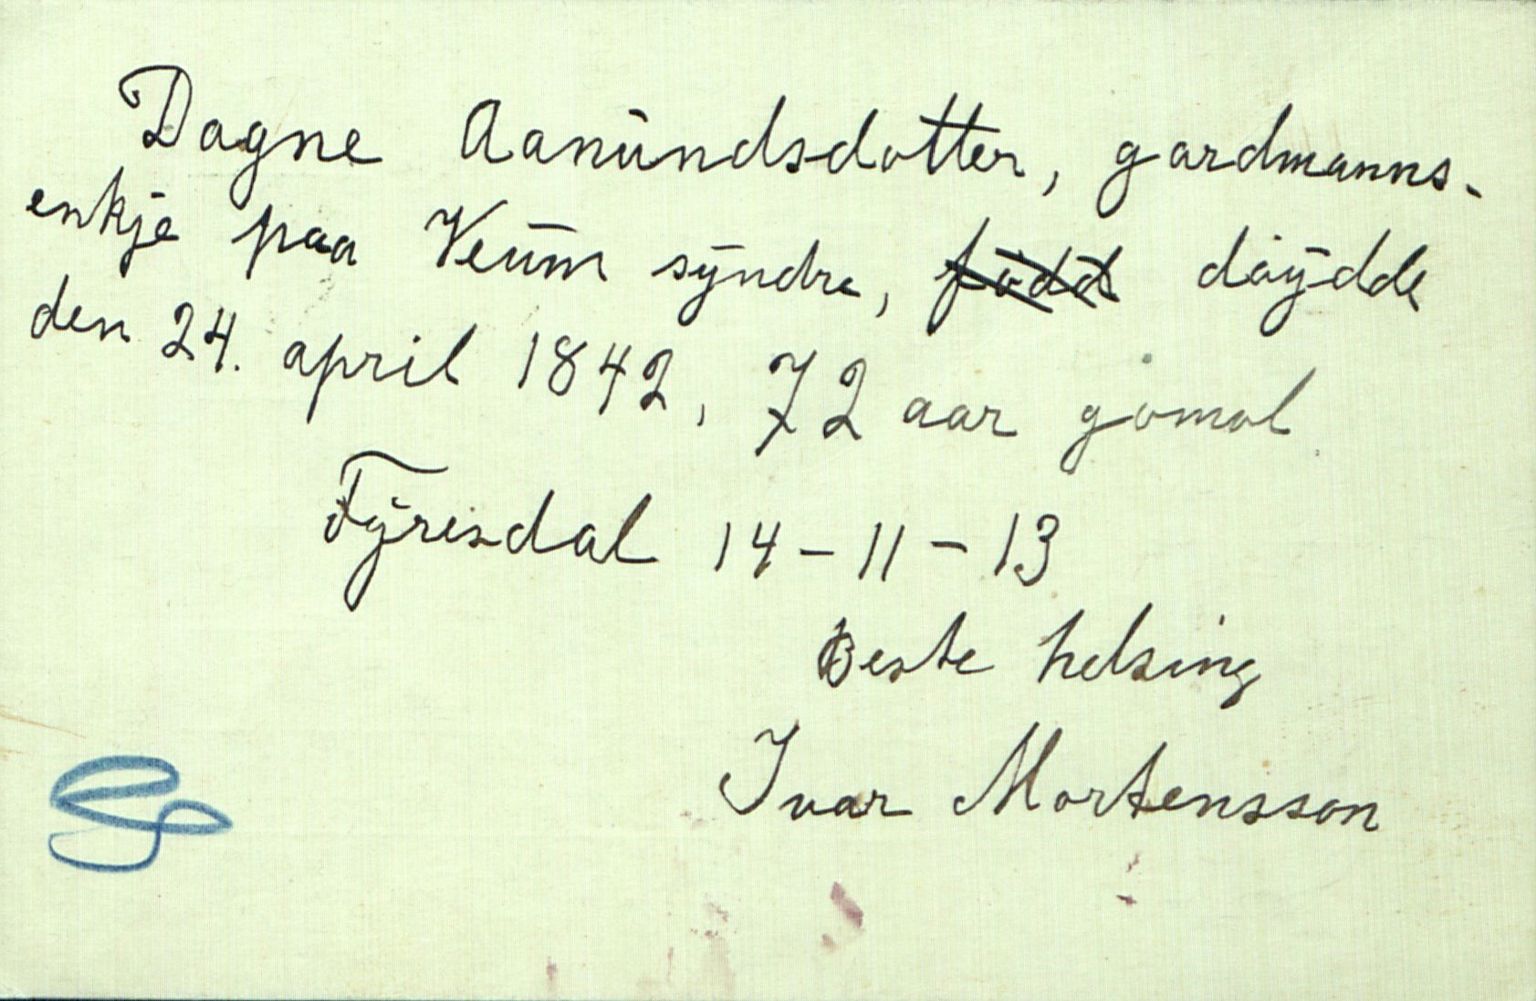 Dagne Aanundsdotter, gardmanns-
enkje paa Veum syndre, född döydde
den 24. april 1842, 72 aar gomol.
Fyresdal 14 - 11 - 13
Beste helsing
Ivar Mortensson